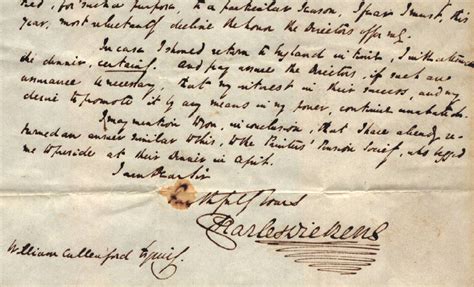 for such a purpose, to a particular season, I fear I must, this
year, most reluctantly decline the honor the Directors offer me.
In case I should return to England in time, I will attend
the dinner, certainly. And pray assure the Directors, if such an
assurance is necessary, that my interest in their success, and my
desire to promote it by any means in my power, continue unabated.
I may mention to you, in conclusion, that I have already re-
turned an answer similar to this, to the Painters' Pension Society, who begged
me to preside at their Dinner in April.
I am Dear Sir
Faithfully Yours
Charles Dickens
William Cullenford Esquire.